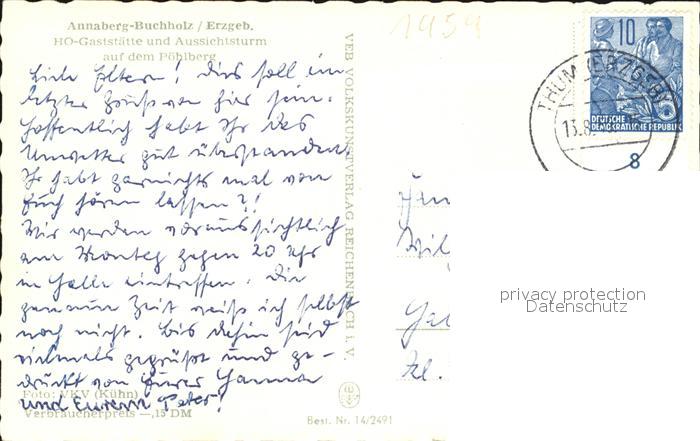 Annaberg-Buchholz / Erzgeb.
HO-Gaststätte und Aussichtsturm
auf dem Pöhlberg
1959
Liebe Eltern! Dies soll ein
letzter Gruß von hier sein.
Hoffentlich habt Ihr das
Unwetter gut überstanden.
Ihr habt garnichts mal von
Euch hören lassen?!
Wir werden voraussichtlich
am Montag gegen 20 Uhr
in Halle eintreffen. Die
genaue Zeit weiß ich selbst
noch nicht. Bis dahin seid
vielmals gegrüßt und ge-
drückt von Eurer Hanna
und Eurem Peter!
Foto: VKV (Kühn)
Verbraucherpreis —,15 DM
VEB VOLKSKUNSTVERLAG REICHENBACH I. V.
Best. Nr. 14/2491
10
DEUTSCHE
DEMOKRATISCHE REPUBLIK
THUM (ERZGEB)
13.8.
8
privacy protection
Datenschutz